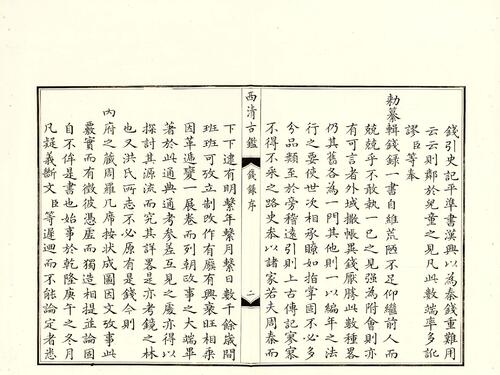 錢引史記平準書漢興以為秦錢重難用
云云則鄰於兒童之見凡此數端率多訛
謬臣等奉
勅纂輯錢錄一書自維荒陋不足仰繼前人而
兢兢乎不敢執一已之見強為附會則亦
有可言者外域撒帳異錢厭勝此數種畧
仍其舊各為一門其他則一以編年之法
行之要使世次相承瞭如指掌固不必多
分品類至於旁稽遠引則上古傳記寥寥
不得不采之路史叅以諸家若夫周秦而
西清古鑑
錢錄序
二
下下逮有明繫年繫月繫日數千餘歲間
班班可攷立制改作有廢有興衰旺相乘
因革遞變一展卷而列朝改事之大端畢
著於此通典通考參差互見之處亦得以
探討其源流而究其詳畧是亦考鏡之林
也又洪氏所志不必原有是錢今則
內府之藏周羅几席按狀成圖因文攷事此
覈實而有徵彼憑虛而獨造相提並論固
自不侔是書也始事於乾隆庚午之冬月
凡疑義斷文臣等遲迴而不能論定者悉